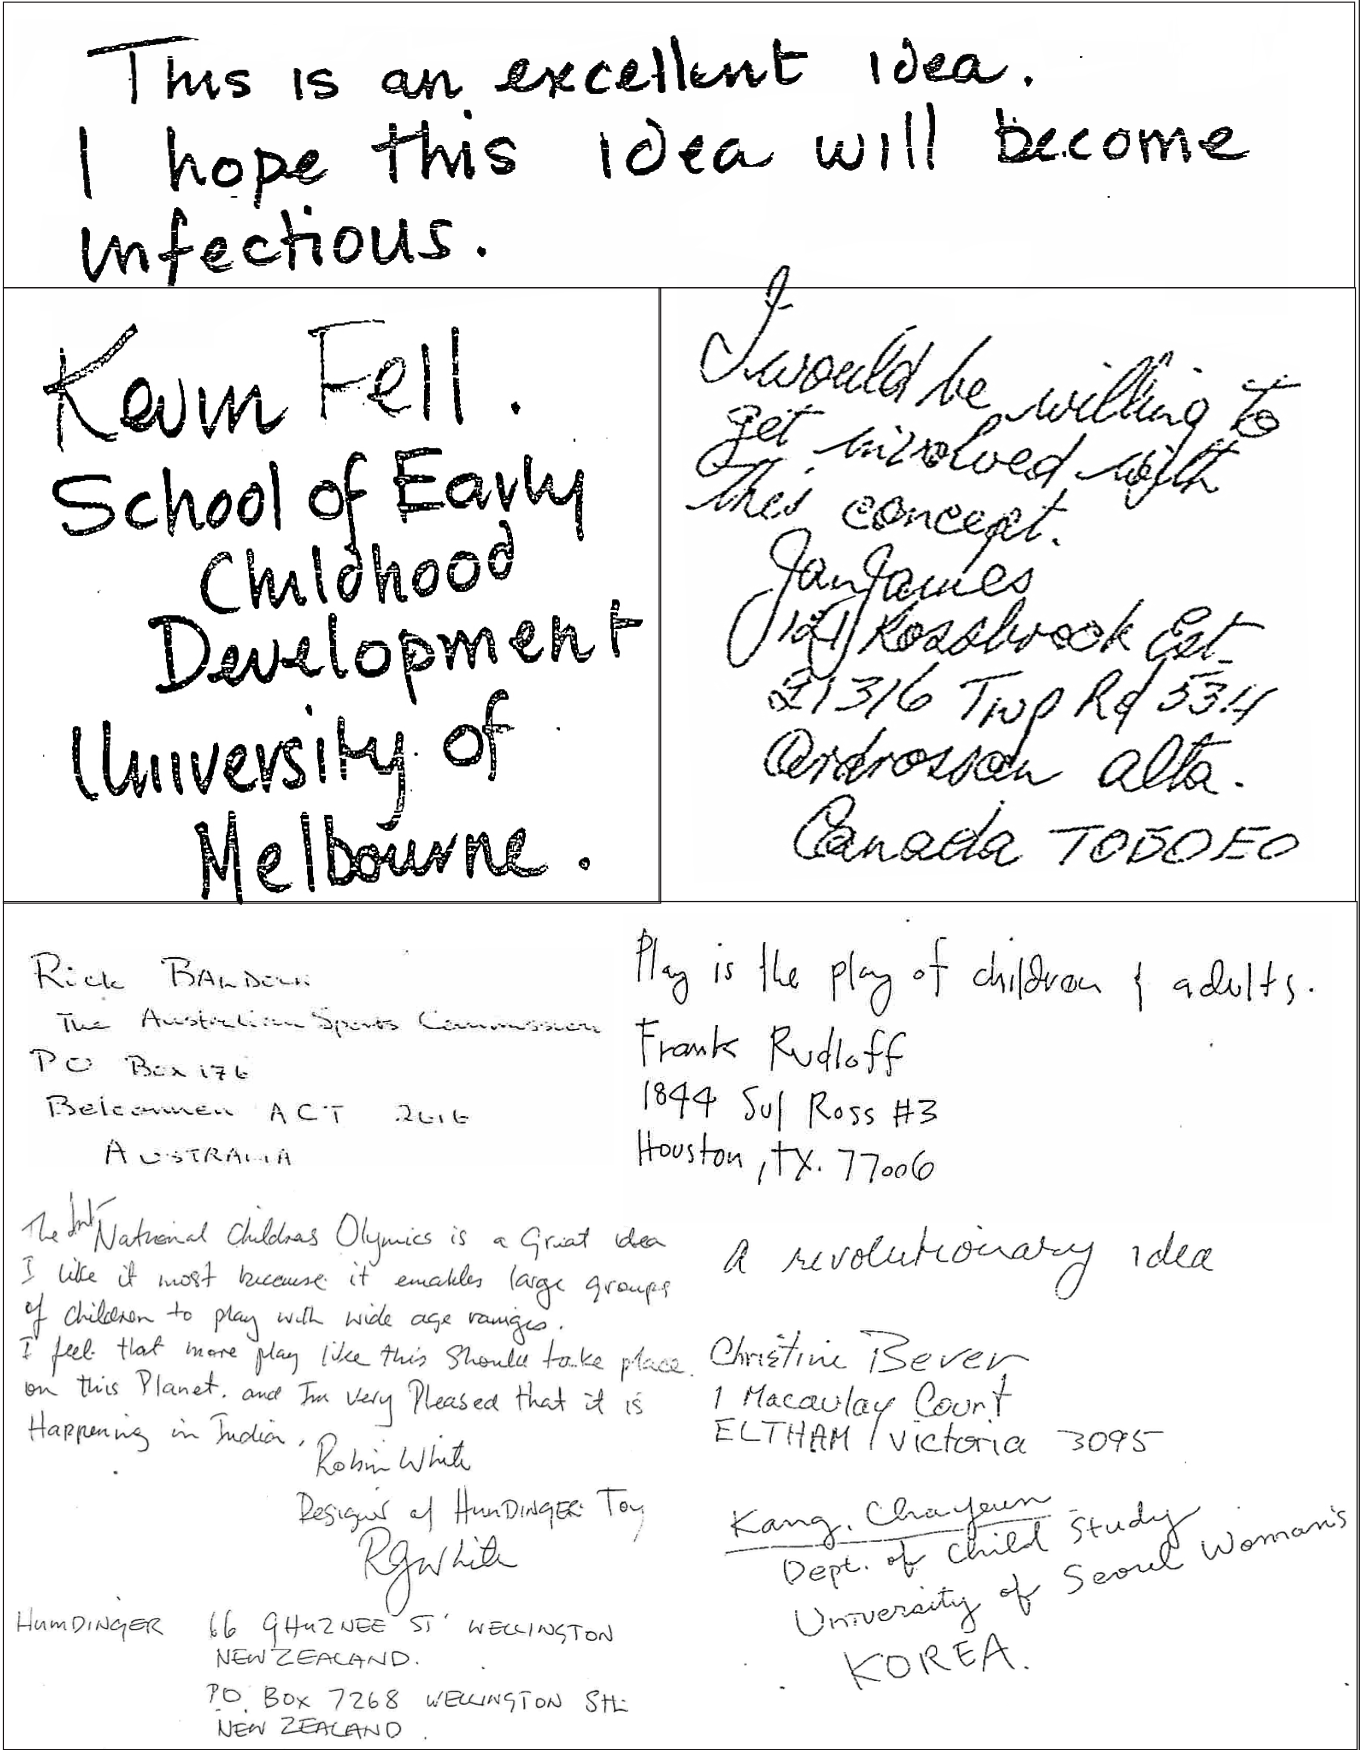 This is an excellent idea.
I hope this idea will become
infectious.
Kevin Fell.
School of Early
Childhood
Development
University of
Melbourne.
I would be willing to
get involved with
this concept.
Jan James
121 Rossbrook Est.
21316 Twp Rd 534
Ardrossan Alta.
Canada TOBOEO
Rick
The Australian Sports Commission
PO Box 176
Belconnen ACT 2616
AUSTRALIA
Play is the play of children & adults.
Frank Rudloff
1844 Sul Ross #3
Houston, TX. 77006
The Int National Childrens Olymics is a Great idea
I like it most because it enables large groups
of children to play with wide age ranges.
I feel that more play like this Should take place
on this Planet. and Im very Pleased that it is
Happening in India.
Robin White
Designer of HUMDINGER Toy
RGWhite
HUMDINGER 66 GHUZNEE ST WELLINGTON
NEW ZEALAND.
PO. BOX 7268 WELLINGTON STH
NEW ZEALAND.
A revolutionary idea
Christine Bever
1 Macaulay Court
ELTHAM / Victoria 3095
Kang, Chayeun
Dept. of Child Study
University of Seoul Woman's
KOREA.